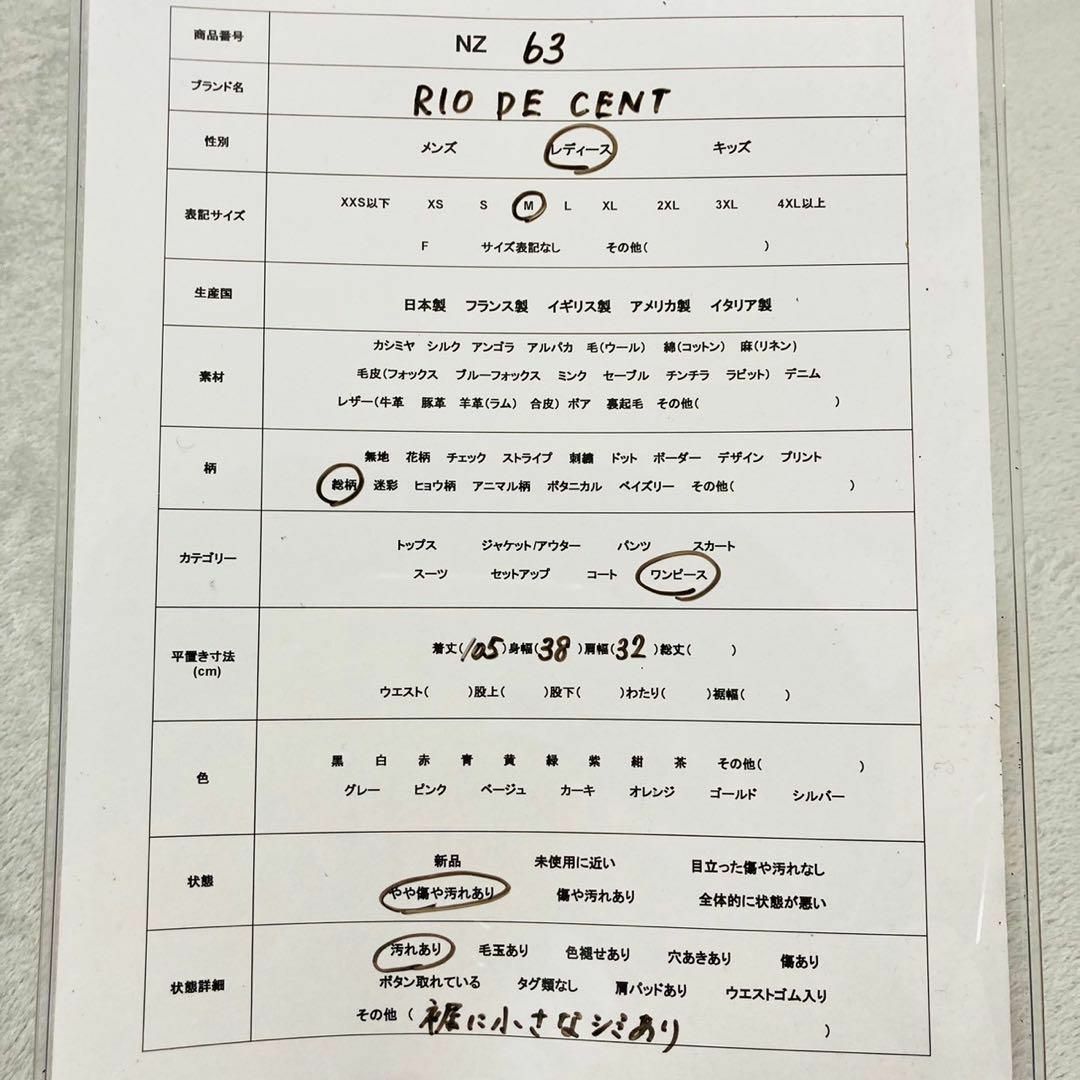 商品番号 NZ 63
ブランド名 RIO DE CENT
性別 メンズ レディース キッズ
表記サイズ XXS以下 XS S M L XL 2XL 3XL 4XL以上
F サイズ表記なし その他( )
生産国 日本製 フランス製 イギリス製 アメリカ製 イタリア製
素材 カシミヤ シルク アンゴラ アルパカ 毛(ウール) 綿(コットン) 麻(リネン)
毛皮(フォックス ブルーフォックス ミンク セーブル チンチラ ラビット) デニム
レザー(牛革 豚革 羊革(ラム) 合皮) ボア 裏起毛 その他( )
柄 無地 花柄 チェック ストライプ 刺繍 ドット ボーダー デザイン プリント
総柄 迷彩 ヒョウ柄 アニマル柄 ボタニカル ペイズリー その他( )
カテゴリー トップス ジャケット/アウター パンツ スカート
スーツ セットアップ コート ワンピース
平置き寸法 (cm) 着丈(105)身幅(38)肩幅(32)総丈( )
ウエスト( )股上( )股下( )わたり( )裾幅( )
色 黒 白 赤 青 黄 緑 紫 紺 茶 その他( )
グレー ピンク ベージュ カーキ オレンジ ゴールド シルバー
状態 新品 未使用に近い 目立った傷や汚れなし
やや傷や汚れあり 傷や汚れあり 全体的に状態が悪い
状態詳細 汚れあり 毛玉あり 色褪せあり 穴あきあり 傷あり
ボタン取れている タグ類なし 肩パッドあり ウエストゴム入り
その他 ( 裾に小さなシミあり )